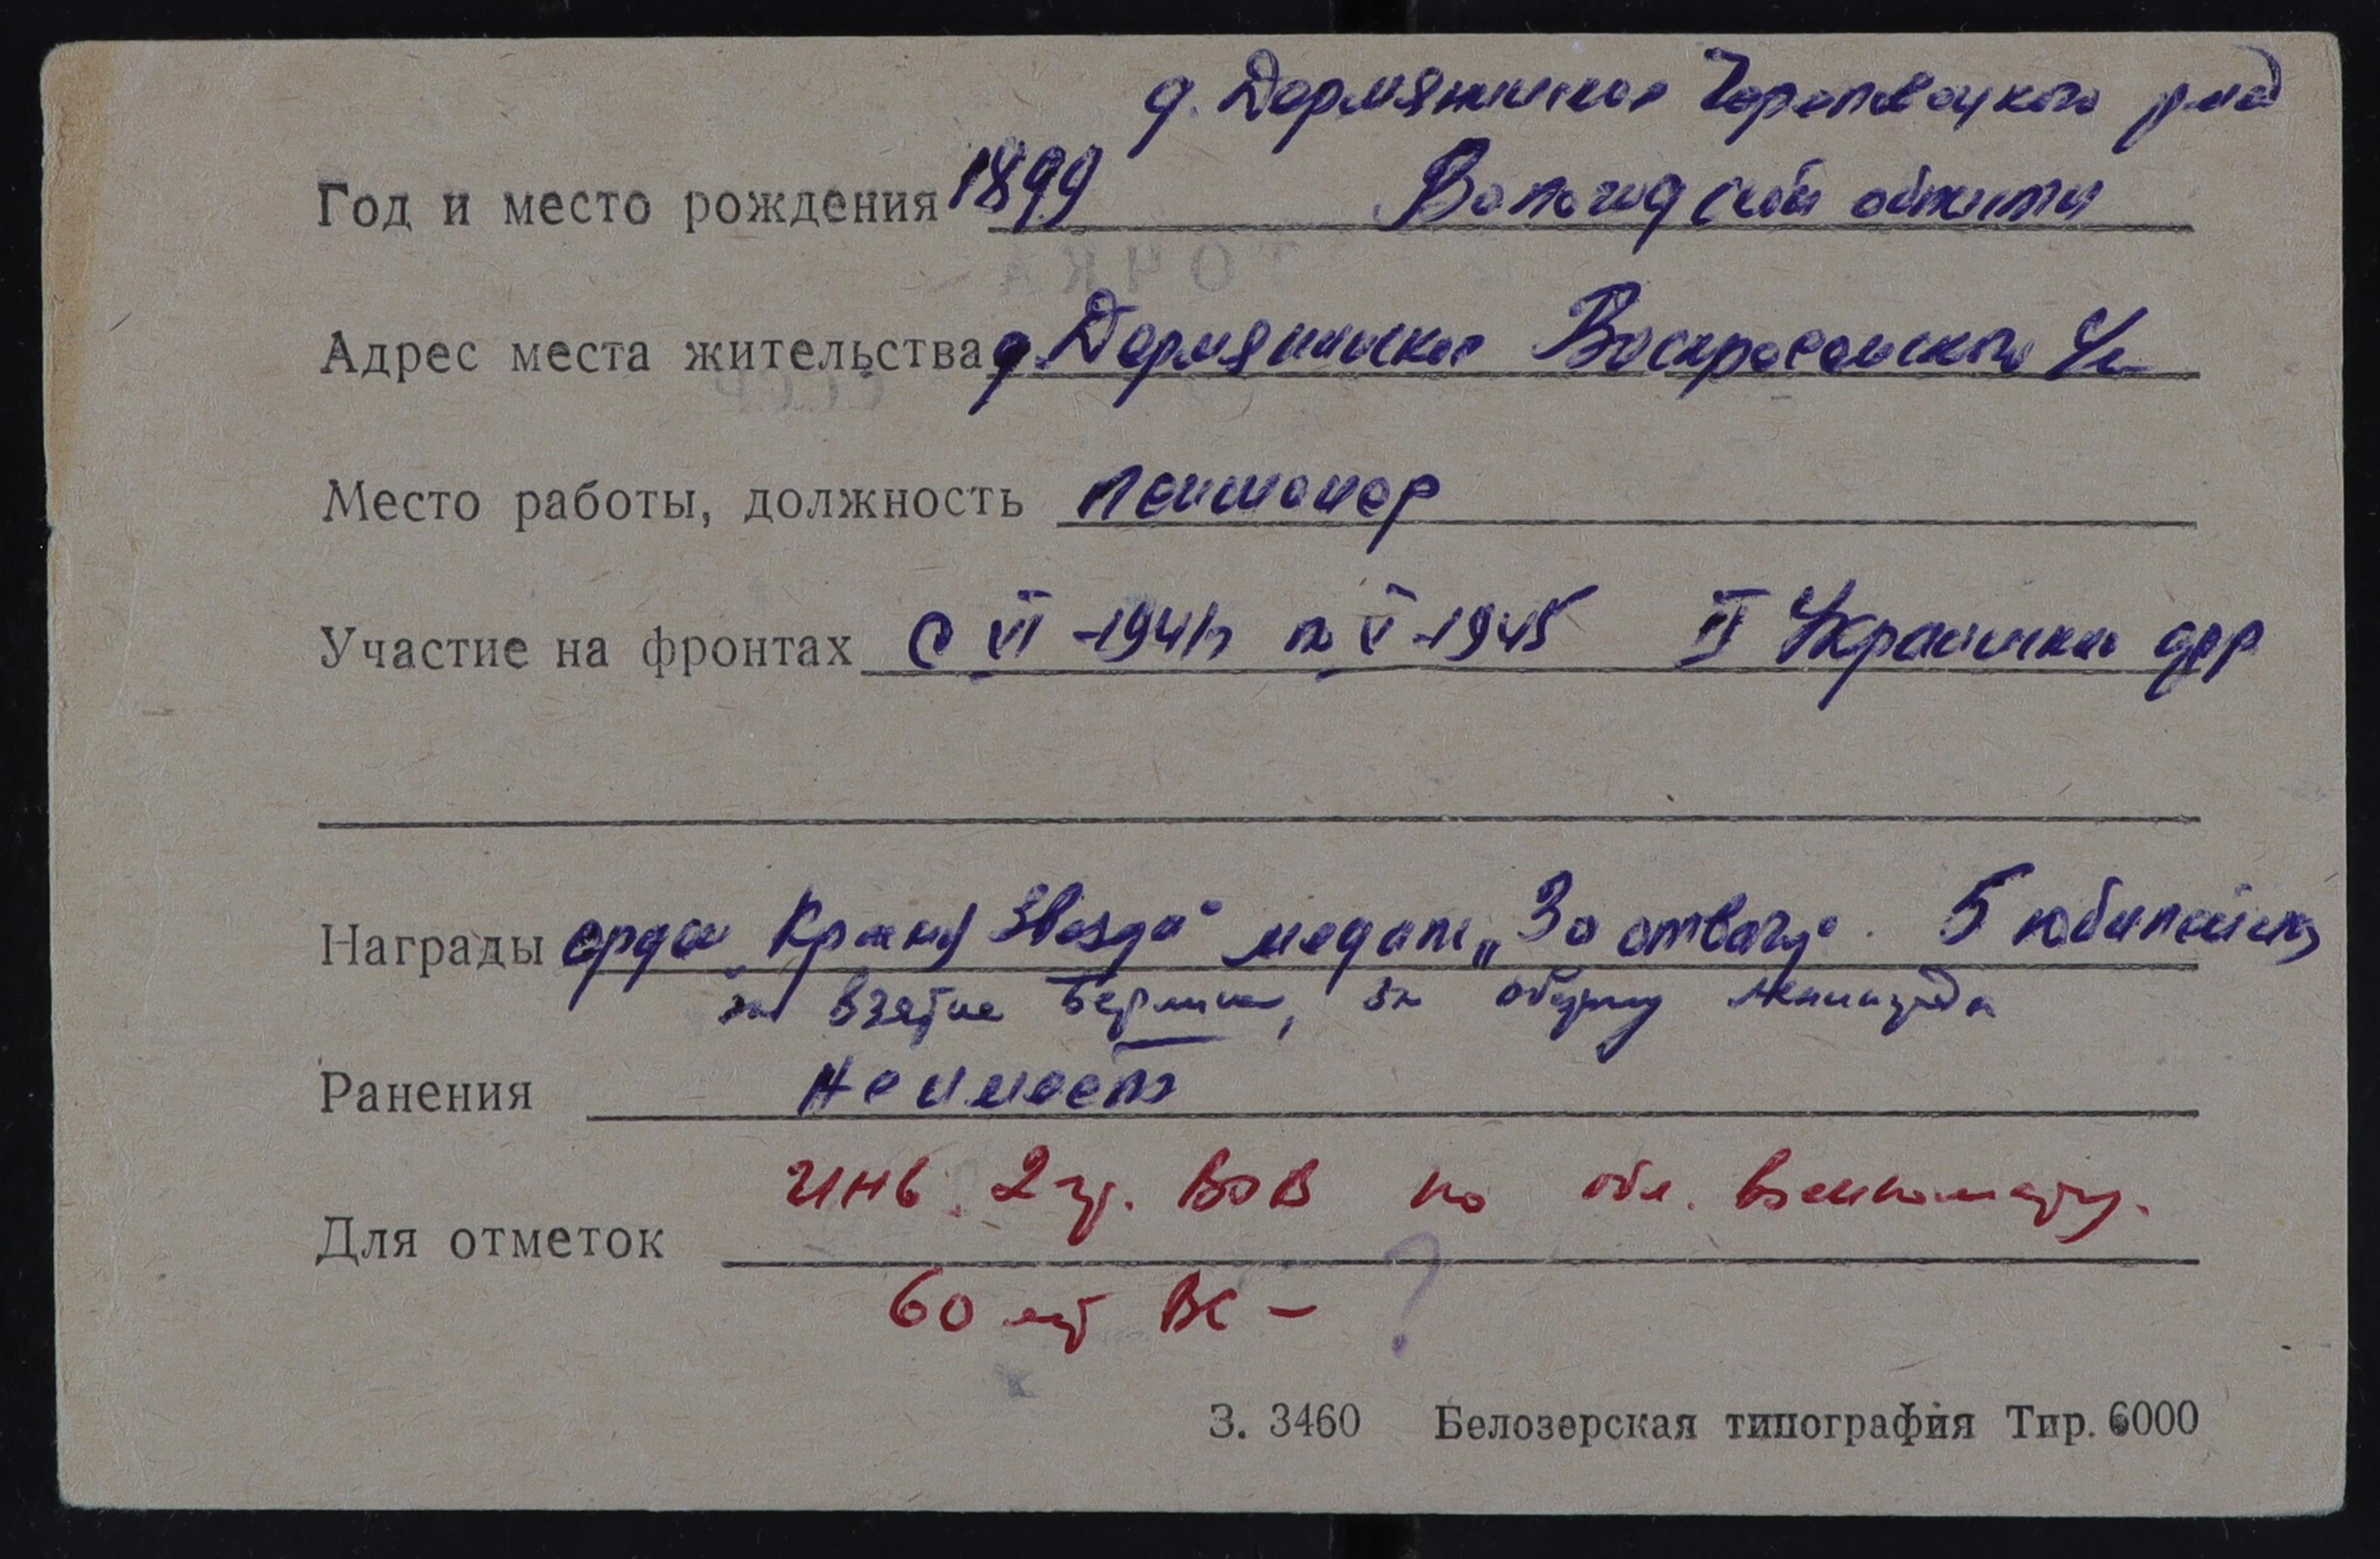 д. Дермянинское Череповецкого р-на
Год и место рождения 1899 Вологодской области
Адрес места жительства д. Дермянинское Воскресенского с/с
Место работы, должность пенсионер
Участие на фронтах с VI-1941г по V-1945 II Украинск фр
Награды орден "Красная Звезда" медаль "За отвагу". 5 юбилейных
за взятие Берлина, за оборону Ленинграда
Ранения не имеет
инв. 2 гр. ВОВ по обл. военкомату.
Для отметок
60 лет ВС - ?
З. 3460 Белозерская типография Тир. 6000